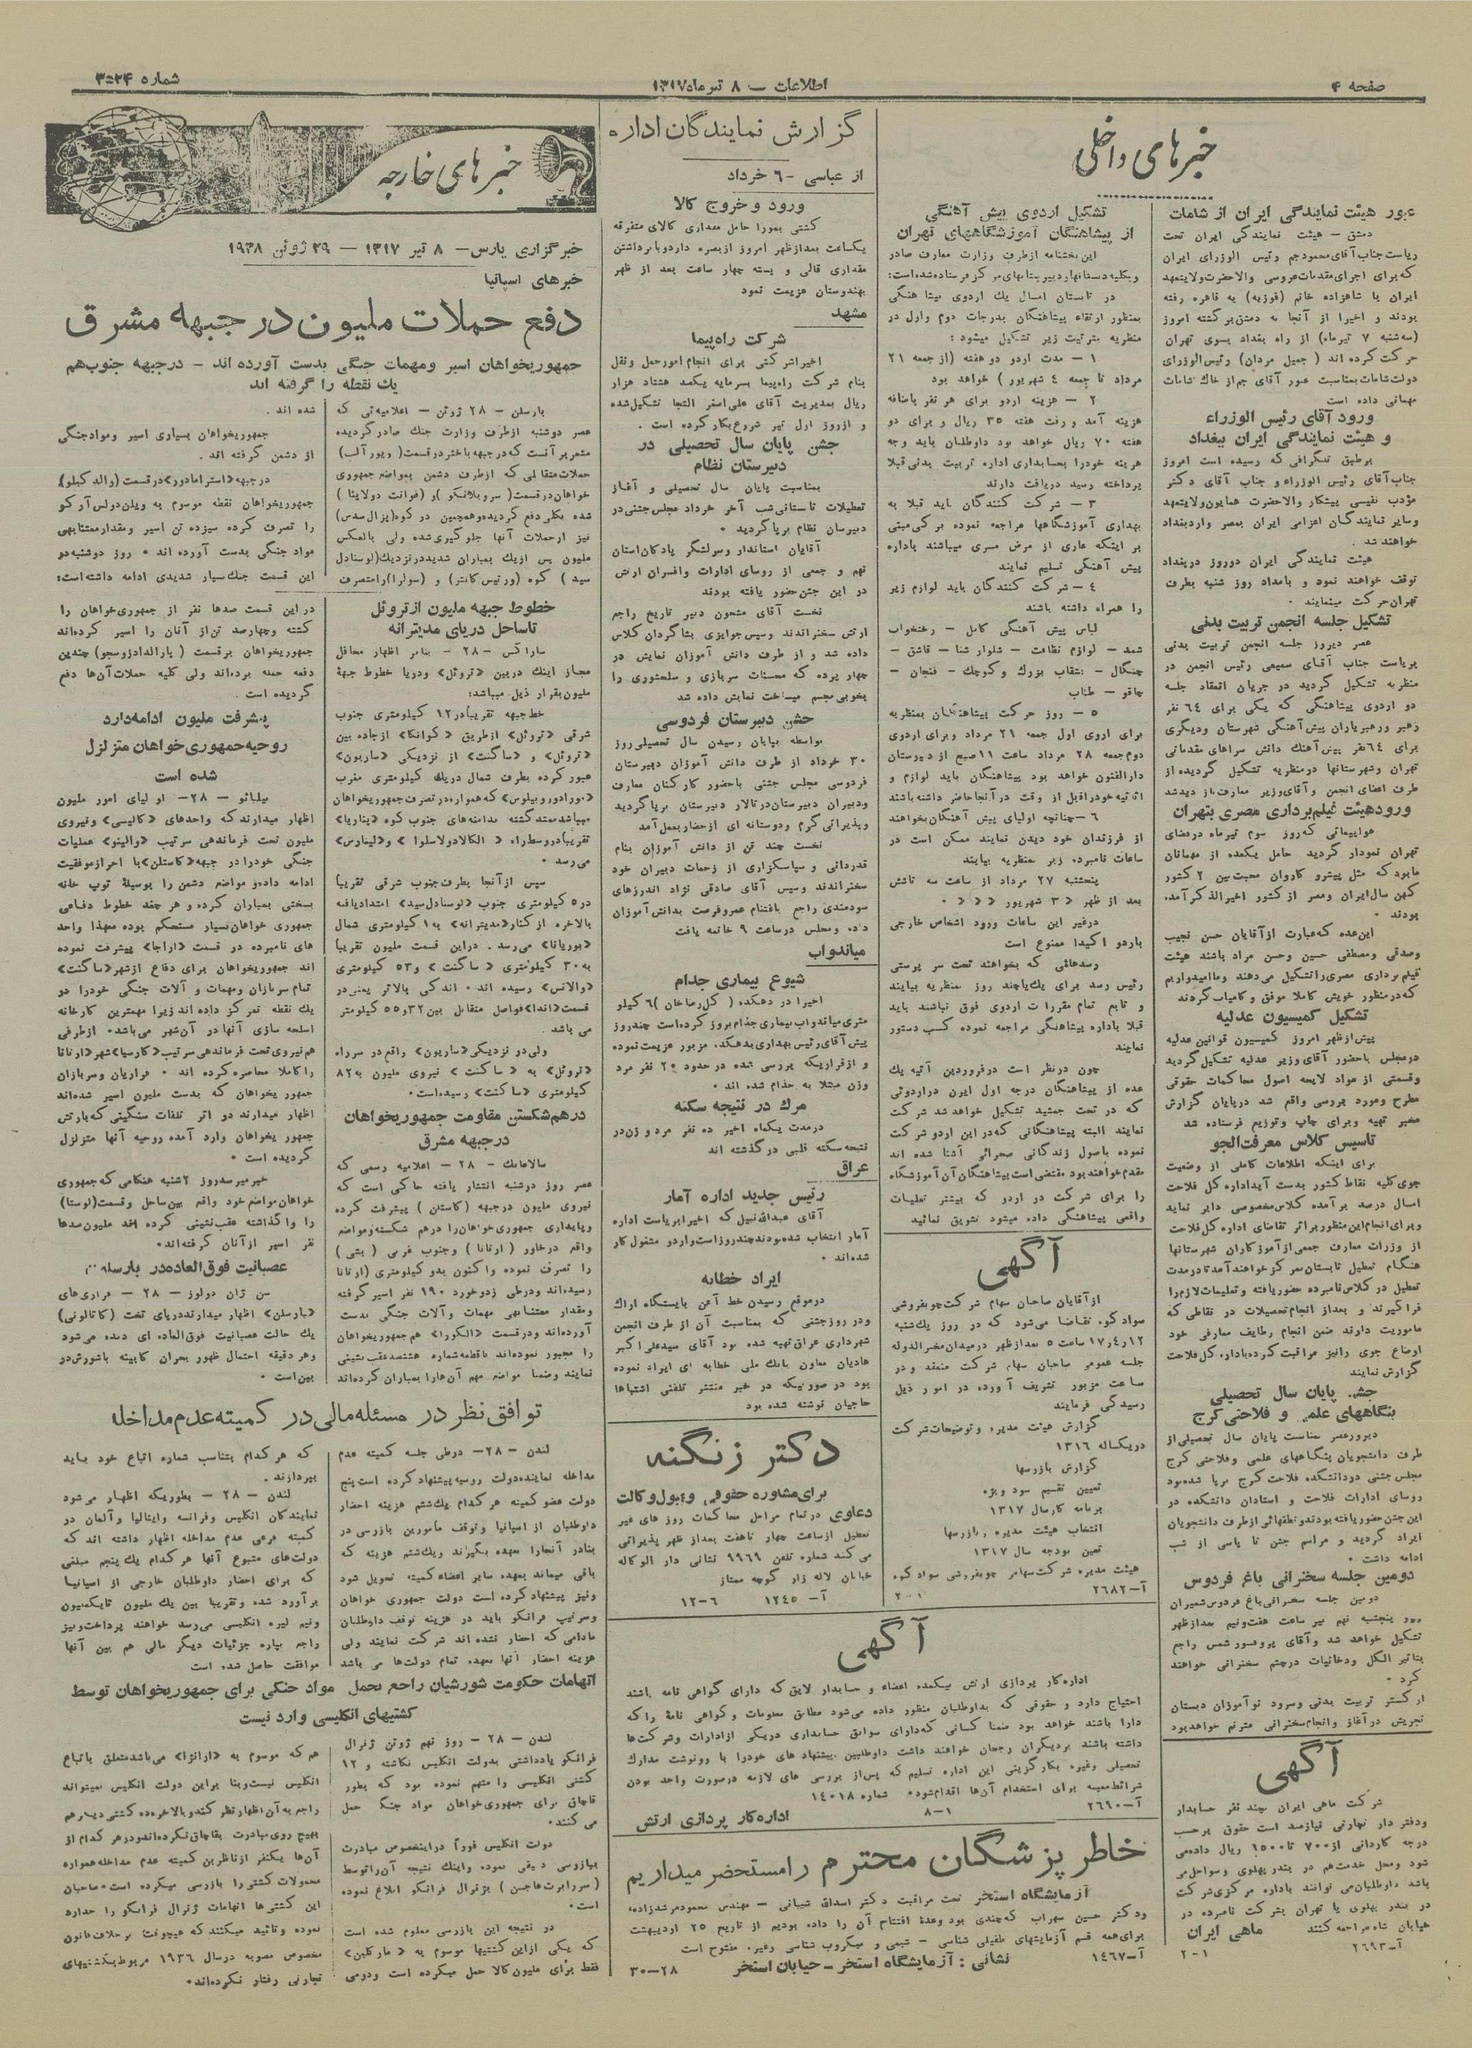 صفحه ۴
اطلاعات — ۸ تیرماه ۱۳۱۷
شماره ۳۵۲۴
خبرهای داخلی
عبور هیئت نمایندگی ایران از شامات
دمشق — هیئت نمایندگی ایران تحت
ریاست جناب آقای محمودجم رئیس الوزرای ایران
که برای اجرای مقدمات عروسی والاحضرت ولایتعهد
ایران با شاهزاده خانم (فوزیه) به قاهره رفته
بودند و اخیرا از آنجا به دمشق برگشته امروز
(سه‌شنبه ۷ تیرماه) از راه بغداد بسوی تهران
حرکت کرده اند (جمیل مردان) رئیس الوزرای
دولت شامات بمناسبت عبور آقای جم از خاك شامات
مهمانی داده است
ورود آقای رئیس الوزراء
و هیئت نمایندگی ایران ببغداد
برطبق تلگرافی که رسیده است امروز
جناب آقای رئیس الوزراء و جناب آقای دکتر
مؤدب نفیسی پیشکار والاحضرت همایون ولایتعهد
وسایر نمایندگان اعزامی ایران بمصر وارد بغداد
خواهند شد.
هیئت نمایندگی ایران دوروز دربغداد
توقف خواهند نمود و بامداد روز شنبه بطرف
تهران حرکت مینمایند
تشکیل جلسه انجمن تربیت بدنی
عصر دیروز جلسه انجمن تربیت بدنی
بریاست جناب آقای سمیعی رئیس انجمن در
منظریه تشکیل گردید در جریان انعقاد جلسه
دو اردوی پیشاهنگی که یکی برای ۶۴ نفر
رهبر ورهبریاران پیش آهنگی شهرستان ودیگری
برای ۶۴ نفر پیش آهنك دانش سراهای مقدماتی
تهران وشهرستانها درمنظریه تشکیل گردیده از
طرف اعضای انجمن وآقای وزیر معارف بازدید شد
ورود هیئت فیلم‌برداری مصری بتهران
هواپیمائی که روز سوم تیرماه درفضای
تهران نمودار گردید حامل یکعده از مهمانان
مابود که مثل پیشرو کاروان محبت بین ۲ کشور
کهن سال ایران ومصر از کشور اخیرالذکر آمده
بودند.
این عده که عبارت از آقایان حسن نجیب
وصدقی ومصطفی حسین وحسن مراد باشند هیئت
فیلم برداری مصری را تشکیل می‌دهند وما امیدواریم
که در منظور خویش کاملا موفق و کامیاب گردند
تشکیل کمیسیون عدلیه
پیش از ظهر امروز کمیسیون قوانین عدلیه
درمجلس باحضور آقای وزیر عدلیه تشکیل گردید
وقسمتی از مواد لایحه اصول محاکمات حقوقی
مطرح ومورد بررسی واقع شد درپایان گزارش
مخبر تهیه وبرای چاپ وتوزیع فرستاده شد
تاسیس کلاس معرفت الجو
برای اینکه اطلاعات کاملی از وضعیت
جوی کلیه نقاط کشور بدست آید اداره کل فلاحت
امسال درصدد برآمده کلاس مخصوصی دایر نماید
وبرای انجام این منظور برابر تقاضای اداره کل فلاحت
از وزرات معارف جمعی از آموزگاران شهرستانها
هنگام تعطیل تابستان بمرکز خواهند آمد تا در مدت
تعطیل در کلاس نامبرده حضور یافته وتعلیمات لازم را
فرا گیرند و بعد از انجام تحصیلات در نقاطی که
ماموریت دارند ضمن انجام وظایف معارفی خود
اوضاع جوی رانیز مراقبت کرده باداره کل فلاحت
گزارش نمایند
جشن پایان سال تحصیلی
بنگاههای علمی و فلاحتی کرج
دیروزعصر بمناسبت پایان سال تحصیلی از
طرف دانشجویان بنگاههای علمی وفلاحتی کرج
مجلس جشنی دردانشکده فلاحت کرج برپا شده بود
روسای ادارات فلاحت و استادان دانشکده در
این جشن حضور یافته بودند ونطقهائی از طرف دانشجویان
ایراد گردید و مراسم جشن تا پاسی از شب
ادامه داشت.
دومین جلسه سخنرانی باغ فردوس
دومین جلسه سخنرانی باغ فردوس شمیران
روز پنجشنبه نهم تیر ساعت هفت ونیم بعدازظهر
تشکیل خواهد شد وآقای پروفسور شمس راجع
بتاثیر الکل ودخانیات درچشم سخنرانی خواهند
کرد.
ارکستر تربیت بدنی وسرود نوآموزان دبستان
تجریش در آغاز وانجام سخنرانی مترنم خواهد بود
آگهی
شرکت ماهی ایران چند نفر حسابدار
ودفتر دار تجارتی نیازمند است حقوق برحسب
درجه کاردانی از ۷۰۰ تا ۱۵۰۰ ریال داده می
شود ومحل خدمت هم در بندر پهلوی و سواحل می
باشد داوطلبان می توانند باداره مرکزی شرکت
در بندر پهلوی یا تهران بشرکت نامبرده در
خیابان شاه مراجعه کنند ماهی ایران
آ—۲۶۹۳ ۲-۱
تشکیل اردوی پیش آهنگی
از پیشاهنگان آموزشگاههای تهران
این بخشنامه از طرف وزارت معارف صادر
وبکلیه دبستانها و دبیرستانهای مرکز فرستاده شده است:
در تابستان امسال یك اردوی پیشاهنگی
بمنظور ارتقاء پیشاهنگان بدرجات دوم واول در
منظریه بترتیب زیر تشکیل میشود:
۱ — مدت اردو دو هفته (از جمعه ۲۱
مرداد تا جمعه ۴ شهریور) خواهد بود
۲ — هزینه اردو برای هر نفر باضافه
هزینه آمد و رفت هفته ۳۵ ریال و برای دو
هفته ۷۰ ریال خواهد بود داوطلبان باید وجه
هزینه خودرا بحسابداری اداره تربیت بدنی قبلا
پرداخته رسید دریافت دارند
۳ — شرکت کنندگان باید قبلا به
بهداری آموزشگاهها مراجعه نموده برگی مبتنی
بر اینکه عاری از مرض مسری میباشند باداره
پیش آهنگی تسلیم نمایند
۴ — شرکت کنندگان باید لوازم زیر
را همراه داشته باشند
لباس پیش آهنگی کامل — رختخواب
شمد — لوازم نظافت — شلوار شنا — قاشق —
چنگال — بشقاب بزرك وکوچك — فنجان —
چاقو — طناب
۵ — روز حرکت پیشاهنگان بمنظریه
برای اردوی اول جمعه ۲۱ مرداد وبرای اردوی
دوم جمعه ۲۸ مرداد ساعت ۱۱ صبح از دبیرستان
دارالفنون خواهد بود پیشاهنگان باید لوازم و
اثاثیه خود را قبل از وقت در آنجا حاضر داشته باشند
۶ — چنانچه اولیای پیش آهنگان بخواهند
از فرزندان خود دیدن نمایند ممکن است در
ساعات نامبرده زیر بمنظریه بیایند
پنجشنبه ۲۷ مرداد از ساعت سه تاشش
بعد از ظهر « ۳ شهریور « « «
درغیر این ساعات ورود اشخاص خارجی
باردو اکیدا ممنوع است
رسدهائی که بخواهند تحت سر پرستی
رئیس رسد برای یك یا چند روز بمنظریه بیایند
و تابع تمام مقررات اردوی فوق نباشند باید
قبلا باداره پیشاهنگی مراجعه نموده کسب دستور
نمایند
چون درنظر است درفروردین آتیه یك
عده از پیشاهنگان درجه اول ایران در اردوئی
که در تخت جمشید تشکیل خواهد شد شرکت
نمایند البته پیشاهنگانی که در این اردو شرکت
نموده باصول زندگانی صحرائی آشنا شده اند
مقدم خواهند بود مقتضی است پیشاهنگان آن آموزشگاه
را برای شرکت در اردو که بیشتر تعلیمات
واقعی پیشاهنگی داده میشود تشویق نمائید
آگهی
از آقایان صاحبان سهام شرکت چوبفروشی
سوادکوه تقاضا می‌شود که در روز یك‌شنبه
۱۷ر۴ر۱۲ ساعت ۵ بعدازظهر درمیدان مخبرالدوله
جلسه عمومی صاحبان سهام شرکت منعقد و در
ساعت مزبور تشریف آورده در امور ذیل
رسیدگی فرمایند
گزارش هیئت مدیره و توضیحات شرکت
در یکساله ۱۳۱۶
گزارش بازرسها
تعیین تقسیم سود ویژه
برنامه کار سال ۱۳۱۷
انتخاب هیئت مدیره و بازرسها
تعیین بودجه سال ۱۳۱۷
هیئت مدیره شرکت سهامی چوبفروشی سوادکوه
آ—۲۶۸۲ ۲-۱
گزارش نمایندگان اداره
از عباسی — ۶ خرداد
ورود و خروج کالا
کشتی بمورا حامل مقداری کالای متفرقه
یکساعت بعدازظهر امروز از بصره وارد و با برداشتن
مقداری قالی و پسته چهار ساعت بعد از ظهر
بهندوستان عزیمت نمود
مشهد
شرکت راه‌پیما
اخیرا شرکتی برای انجام امور حمل ونقل
بنام شرکت راه‌پیما بسرمایه یکصد هشتاد هزار
ریال بمدیریت آقای علی اصغر التجا تشکیل شده
و از روز اول تیر شروع بکار کرده است.
جشن پایان سال تحصیلی در
دبیرستان نظام
بمناسبت پایان سال تحصیلی و آغاز
تعطیلات تابستانی شب آخر خرداد مجلس جشنی در
دبیرستان نظام برپا گردید.
آقایان استاندار وسرلشگر پادگان استان
نهم و جمعی از روسای ادارات وافسران ارش
در این جشن حضور یافته بودند
نخست آقای متحون دبیر تاریخ راجع
ارتش سخنراندند وسپس جوایزی بشاگردان کلاس
داده شد و از طرف دانش آموزان نمایش در
چهار پرده که محسنات سربازی و سلحشوری را
بخوبی مجسم میساخت نمایش داده شد
جشن دبیرستان فردوسی
بواسطه بپایان رسیدن سال تحصیلی روز
۳۰ خرداد از طرف دانش آموزان دبیرستان
فردوسی مجلس جشنی باحضور کارکنان معارف
ودبیران دبیرستان در تالار دبیرستان برپا گردید
وپذیرائی گرم ودوستانه ای از حضار بعمل آمد
نخست چند تن از دانش آموزان بنام
قدردانی و سپاسگزاری از زحمات دبیران خود
سخنراندند وسپس آقای صادقی نژاد اندرزهای
سودمندی راجع باغتنام عمر وفرصت بدانش آموزان
داده ومجلس درساعت ۹ خاتمه یافت
میاندواب
شیوع بیماری جذام
اخیرا در دهکده (کل رضاخان) ۶ کیلو
متری میاندواب بیماری جذام بروز کرده است چندروز
پیش آقای رئیس بهداری بدهکده مزبور عزیمت نموده
و از قراریکه بررسی شده در حدود ۲۰ نفر مرد
وزن مبتلا به جذام شده اند.
مرك در نتیجه سکته
درمدت یکماه اخیر ده نفر مرد و زن در
نتیجه سکته قلبی در گذشته اند
عراق
رئیس جدید اداره آمار
آقای عبدالله نبیل که اخیرا بریاست اداره
آمار انتخاب شده بودند چند روز است وارد و مشغول کار
شده‌اند.
ایراد خطابه
درموقع رسیدن خط آهن بایستگاه اراك
ودر روز جشنی که بمناسبت آن از طرف انجمن
شهرداری عراق تهیه شده بود آقای سیدعلی اکبر
هادیان معاون بانك ملی خطابه ای ایراد نموده
بود در صورتیکه در خبر منتشر تلفنی اشتباها
حاجیان نوشته شده بود
دکتر زنگنه
برای مشاوره حقوقی وقبول وکالت
دعاوی درتمام مراحل محاکمات روز های غیر
تعطیل ازساعت چهار تاهفت بعداز ظهر پذیرائی
می کند شماره تلفن ۹۹۶۹ نشانی دار الوکاله
خیابان لاله زار کوچه ممتاز
آ— ۱۲۴۵ ۱۲-۶
آگهی
اداره کار پردازی ارتش بیکعده اعضاء و حسابدار لایق که دارای گواهی نامه باشند
احتیاج دارد و حقوقی که بداوطلبان منظور داده می‌شود مطابق معلومات وگواهی نامه را که
دارا باشند خواهد بود ضمنا کسانی که دارای سوابق حسابداری در یکی ازادارات وشرکت‌ها
داشته باشند بردیگران رجحان خواهند داشت داوطلبین پیشنهاد های خودرا با رونوشت مدارك
تحصیلی وغیره بکارگزینی این اداره تسلیم که پس‌از بررسی های لازمه درصورت واجد بودن
شرائط معینه برای استخدام آن‌ها اقدام شود. شماره ۱۴۰۱۸
آ—۲۶۹۰ ۸—۱
اداره کار پردازی ارتش
خاطر پزشگان محترم را مستحضر میداریم
آزمایشگاه استخر تحت مراقبت دکتر اسداق شیبانی — مهندس محمود مرشدزاده
ودکتر حسین سهراب که چندی بود وعدهٔ افتتاح آن را داده بودیم از تاریخ ۲۵ اردیبهشت
برای همه قسم آزمایشهای طفیلی شناسی — شیمی و میکروب شناسی وغیره مفتوح است
آ—۱۴۶۷ نشانی: آزمایشگاه استخر — خیابان استخر ۳۰—۲۸
خبرهای خارجه
خبرگزاری پارس — ۸ تیر ۱۳۱۷ — ۲۹ ژوئن ۱۹۳۸
خبرهای اسپانیا
دفع حملات ملیون در جبهه مشرق
جمهوریخواهان اسیر ومهمات جنگی بدست آورده اند — درجبهه جنوب هم
یك نقطه را گرفته اند
بارسلن — ۲۸ ژوئن — اعلامیه‌ئی که
عصر دوشنبه ازطرف وزارت جنك صادر گردیده
مشعر بر آنست که درجبهه باختر در قسمت (ریور آلب)
حملات متقابلی که ازطرف دشمن بمواضع جمهوری
خواهان درقسمت (سروبلانکو) و (فوانت دولاپنا)
شده بکلی دفع گردیده وهمچنین در کوه (پزال سدس)
نیز ازحملات آنها جلوگیری شده ولی بالعکس
ملیون پس ازیك بمباران شدید درنزدیك (لوسنادل
سید) کوه (ورتیس کانتر) و (سولرا) را متصرف
شده اند.
جمهوریخواهان بسیاری اسیر وموادجنگی
از دشمن گرفته اند.
درجبهه «استرامادور» درقسمت (والد کبلو)
جمهوریخواهان نقطه موسوم به ویلن‌دولس آرکو
را تصرف کرده سیزده تن اسیر ومقدار معتنابهی
مواد جنگی بدست آورده اند. روز دوشنبه در
این قسمت جنك بسیار شدیدی ادامه داشته است:
در این قسمت صدها نفر از جمهوری‌خواهان را
کشته وچهارصد تن از آنان را اسیر کرده‌اند
جمهوریخواهان برقسمت (پارالدادزوسجو) چندین
دفعه حمله برده‌اند ولی کلیه حملات آن‌ها دفع
گردیده است.
خطوط جبهه ملیون از تروئل
تاساحل دریای مدیترانه
ساراگس — ۲۸ — بنابر اظهار محافل
مجاز اینك دربین «تروئل» ودریا خطوط جبهة
ملیون بقرار ذیل میباشد:
خط جبهه تقریبا در ۱۲ کیلومتری جنوب
شرقی «تروئل» ازطریق «کوانکا» ازجاده بین
«تروئل» و «ساگنت» از نزدیکی «ساریون»
عبور کرده بطرف شمال دریك کیلومتری مغرب
«مورادوروبیلوس» که همواره در تصرف جمهوریخواهان
میباشد ممتد گشته بدامنه‌های جنوب کوه «پناریا»
تقریبا در وسط راه «الکالادولاسلوا» و «لینارس»
می‌رسد.
سپس از آنجا بطرف جنوب شرقی تقریبا
در ۵ کیلومتری جنوب «لوسنادل سید» امتداد یافته
بالاخره از کنار «مدیترانه» به ۱۰ کیلومتری شمال
«بوریانا» می‌رسد. دراین قسمت ملیون تقریبا
به ۳۰ کیلومتری «ساگنت» و ۵۳ کیلومتری
«والانس» رسیده اند. اندکی بالاتر یعنی در
قسمت «اندا» فواصل متقابل بین ۳۲ و ۵۵ کیلومتر
می باشد.
ولی در نزدیکی «ساریون» واقع در سر راه
«تروئل» به «ساگنت» نیروی ملیون به ۸۲
کیلومتری «ساگنت» رسیده است.
درهم شکستن مقاومت جمهوریخواهان
درجبهه مشرق
سالامانك — ۲۸ — اعلامیه رسمی که
عصر روز دوشنبه انتشار یافته حاکی است که
نیروی ملیون درجبهه (کاستن) پیشرفت کرده
وپایداری جمهوری‌خواهان را درهم شکسته ومواضع
واقع درخاور (ارتانا) وجنوب غربی (بتی)
را تصرف نموده واکنون بدو کیلومتری (ارتانا)
رسیده‌اند ودرطی زدوخورد ۱۹۰ نفر اسیر گرفته
ومقدار معتنابهی مهمات وآلات جنگی بدست
آورده‌اند ودرقسمت «الکورا» هم جمهوریخواهان
را مجبور نموده‌اند تا قطعه شماره هشتصد عقب نشینی
نمایند وضمنا مواضع مهم آن‌هارا بمباران کرده‌اند
پیشرفت ملیون ادامه دارد
روحیه جمهوری خواهان متزلزل
شده است
بیلبائو — ۲۸ — اولیای امور ملیون
اظهار میدارند که واحدهای «کالیسی» ونیروی
ملیون تحت فرماندهی سرتیپ «والینو» عملیات
جنگی خودرا در جبهه «کاستلن» با احراز موفقیت
ادامه داده و مواضع دشمن را بوسیلهٔ توپ خانه
بسختی بمباران کرده و هر چند خطوط دفاعی
جمهوری خواهان بسیار مستحکم بوده معهذا واحد
های نامبرده در قسمت «اراجا» پیشرفت نموده
اند جمهوریخواهان برای دفاع از شهر «ساگنت»
تمام سربازان ومهمات و آلات جنگی خودرا در
یك نقطه تمرکز داده اند زیرا مهمترین کارخانه
اسلحه سازی آنها در آن شهر می‌باشد. از طرفی
هم نیروی تحت فرماندهی سرتیپ «کارسیا» شهر «ارتانا»
را کاملا محاصره کرده اند. فراریان وسربازان
جمهور یخواهان که بدست ملیون اسیر شده‌اند
اظهار میدارند در اثر تلفات سنگینی که بارتش
جمهور یخواهان وارد آمده روحیه آنها متزلزل
گردیده است.
خبر میرسد روز ۲شنبه هنگامی که جمهوری
خواهان مواضع خود واقع بین ساحل وقسمت (لوستا)
را واگذاشته عقب نشینی کرده اند ملیون صدها
نفر اسیر از آنان گرفته‌اند.
عصبانیت فوق‌العاده در بارسلن
سن ژان دولوز — ۲۸ — فراری‌های
«بارسلن» اظهار میدارند درپای تخت (کاتالونی)
یك حالت عصبانیت فوق‌العاده ای دیده می‌شود
وهر دقیقه احتمال ظهور بحران کابینه باشورش در
بین است.
توافق نظر در مسئله مالی در کمیته عدم مداخله
لندن — ۲۸ — درطی جلسه کمیته عدم
مداخله نماینده دولت روسیه پیشنهاد کرده است پنج
دولت عضو کمیته هر کدام یك‌شم هزینه احضار
داوطلبان از اسپانیا و توقف مأمورین بازرسی در
بنادر آنجارا بعهده بگیرند ویك‌شم هزینه که
باقی میماند بعهده سایر اعضاء کمیته تحویل شود
ونیز پیشنهاد کرده است دولت جمهوری خواهان
وسرتیپ فرانکو باید در هزینه توقف داوطلبان
مادامی که احضار نشده اند شرکت نمایند ولی
هزینه احضار آنها بعهده تمام دولت‌ها می باشد
که هر کدام بتناسب شماره اتباع خود باید
بپردازند.
لندن — ۲۸ — بطوریکه اظهار می‌شود
نمایندگان انگلیس وفرانسه وایتالیا وآلمان در
کمیته فرعی عدم مداخله اظهار داشته اند که
دولت‌های متبوع آنها هر کدام یك پنجم مبلغی
که برای احضار داوطلبان خارجی از اسپانیا
برآورد شده وتقریبا بین یك ملیون تایك‌ملیون
ونیم لیره انگلیسی می‌رسد خواهند پرداخت ونیز
راجع بپاره جزئیات دیگر مالی هم بین آنها
موافقت حاصل شده است
اتهامات حکومت شورشیان راجع بحمل مواد جنگی برای جمهوریخواهان توسط
کشتیهای انگلیسی وارد نیست
لندن — ۲۸ — روز نهم ژوئن ژنرال
فرانکو یادداشتی بدولت انگلیس نگاشته و ۱۲
کشتی انگلیسی را متهم نموده بود که بطور
قاچاق برای جمهوری‌خواهان مواد جنگی حمل
می کنند.
دولت انگلیس فوراً دراینخصوص مبادرت
ببازرسی دقیقی نموده واینك نتیجه آن‌را توسط
(سررابرت‌هاجسن) بژنرال فرانکو ابلاغ نموده
است.
در نتیجه این بازرسی معلوم شده است
که یکی از این کشتیها موسوم به «مارکلین»
فقط برای ملیون کالا حمل میکرده است ودومی
هم که موسوم به «ارانزا» می‌باشد متعلق باتباع
انگلیس نیست وبنا براین دولت انگلیس نمیتواند
راجع به آن اظهار نظر کند وبالاخره ده کشتی دیگر هم
بهیچ روی مبادرت بقاچاق نکرده‌اند ودر هر کدام از
آن‌ها یکنفر ازناظرین کمیته عدم مداخله همواره
محمولات کشتی‌را بازرسی میکرده است. صاحبان
این کشتی‌ها اتهامات ژنرال فرانکو را جدا رد
نموده وتائید میکنند که هیچوقت برخلاف قانون
مخصوص مصوبه درسال ۱۹۳۶ مربوط بکشتیهای
تجارتی رفتار نکرده‌اند.